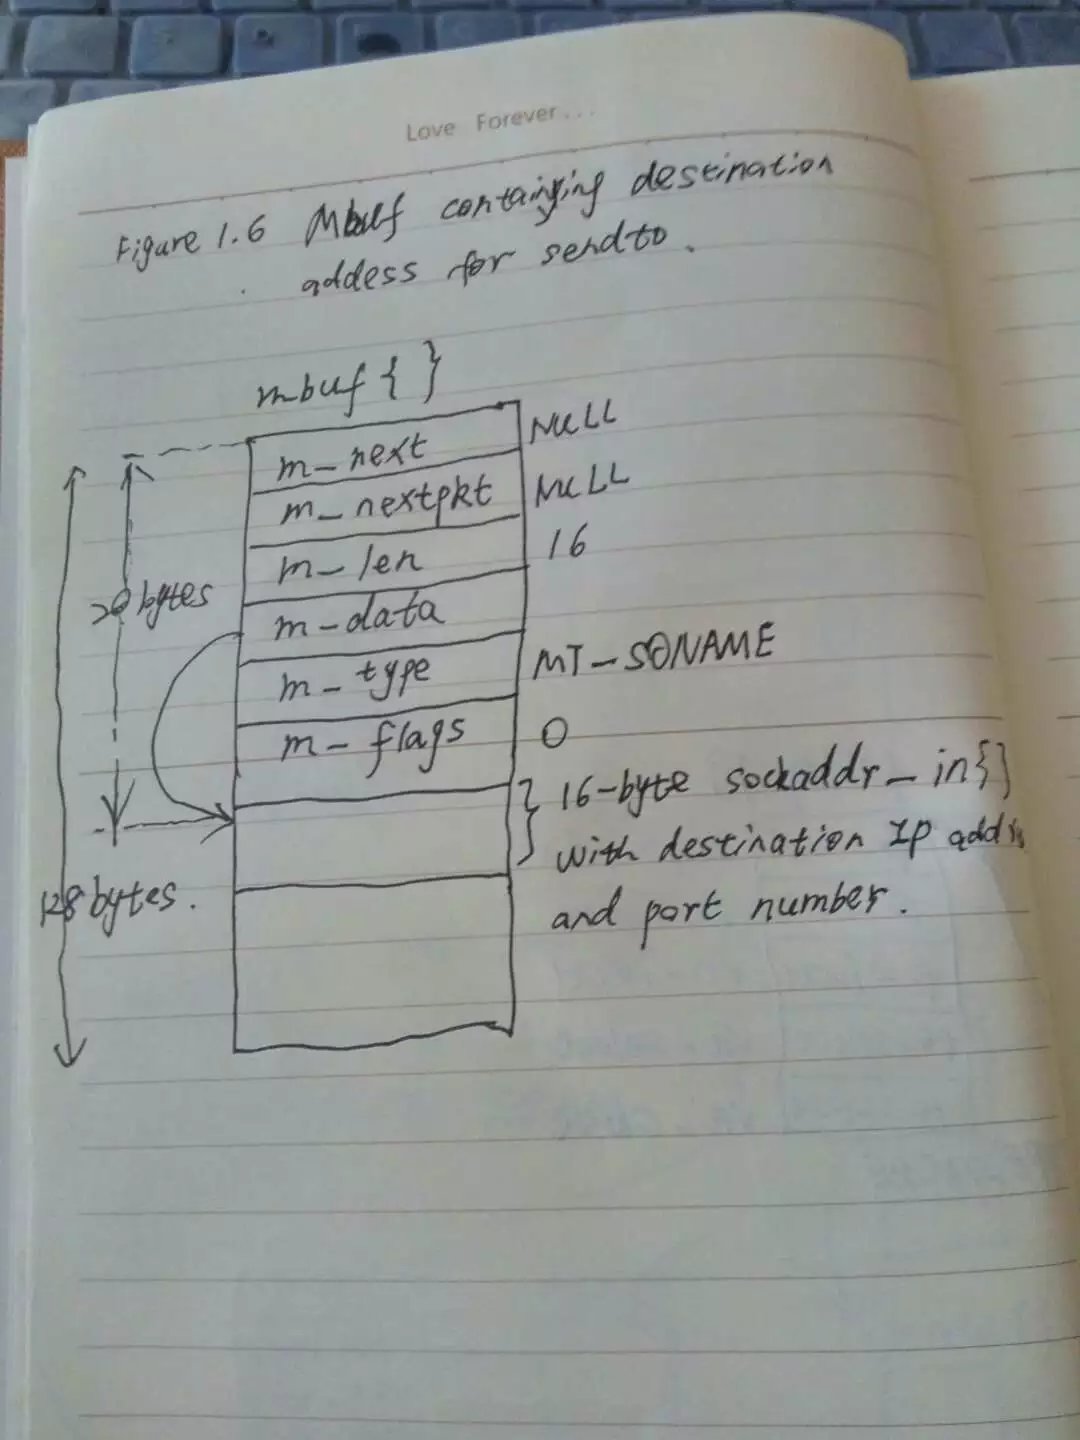 Love Forever...
Figure 1.6 Mbuf containing destination
addess for sendto.
mbuf { }
m_next NULL
m_nextpkt NULL
m_len 16
20 bytes
m-data
m_type MT_SONAME
m-flags 0
} 16-byte sockaddr_in{}
with destination IP addr
128 bytes.
and port number.